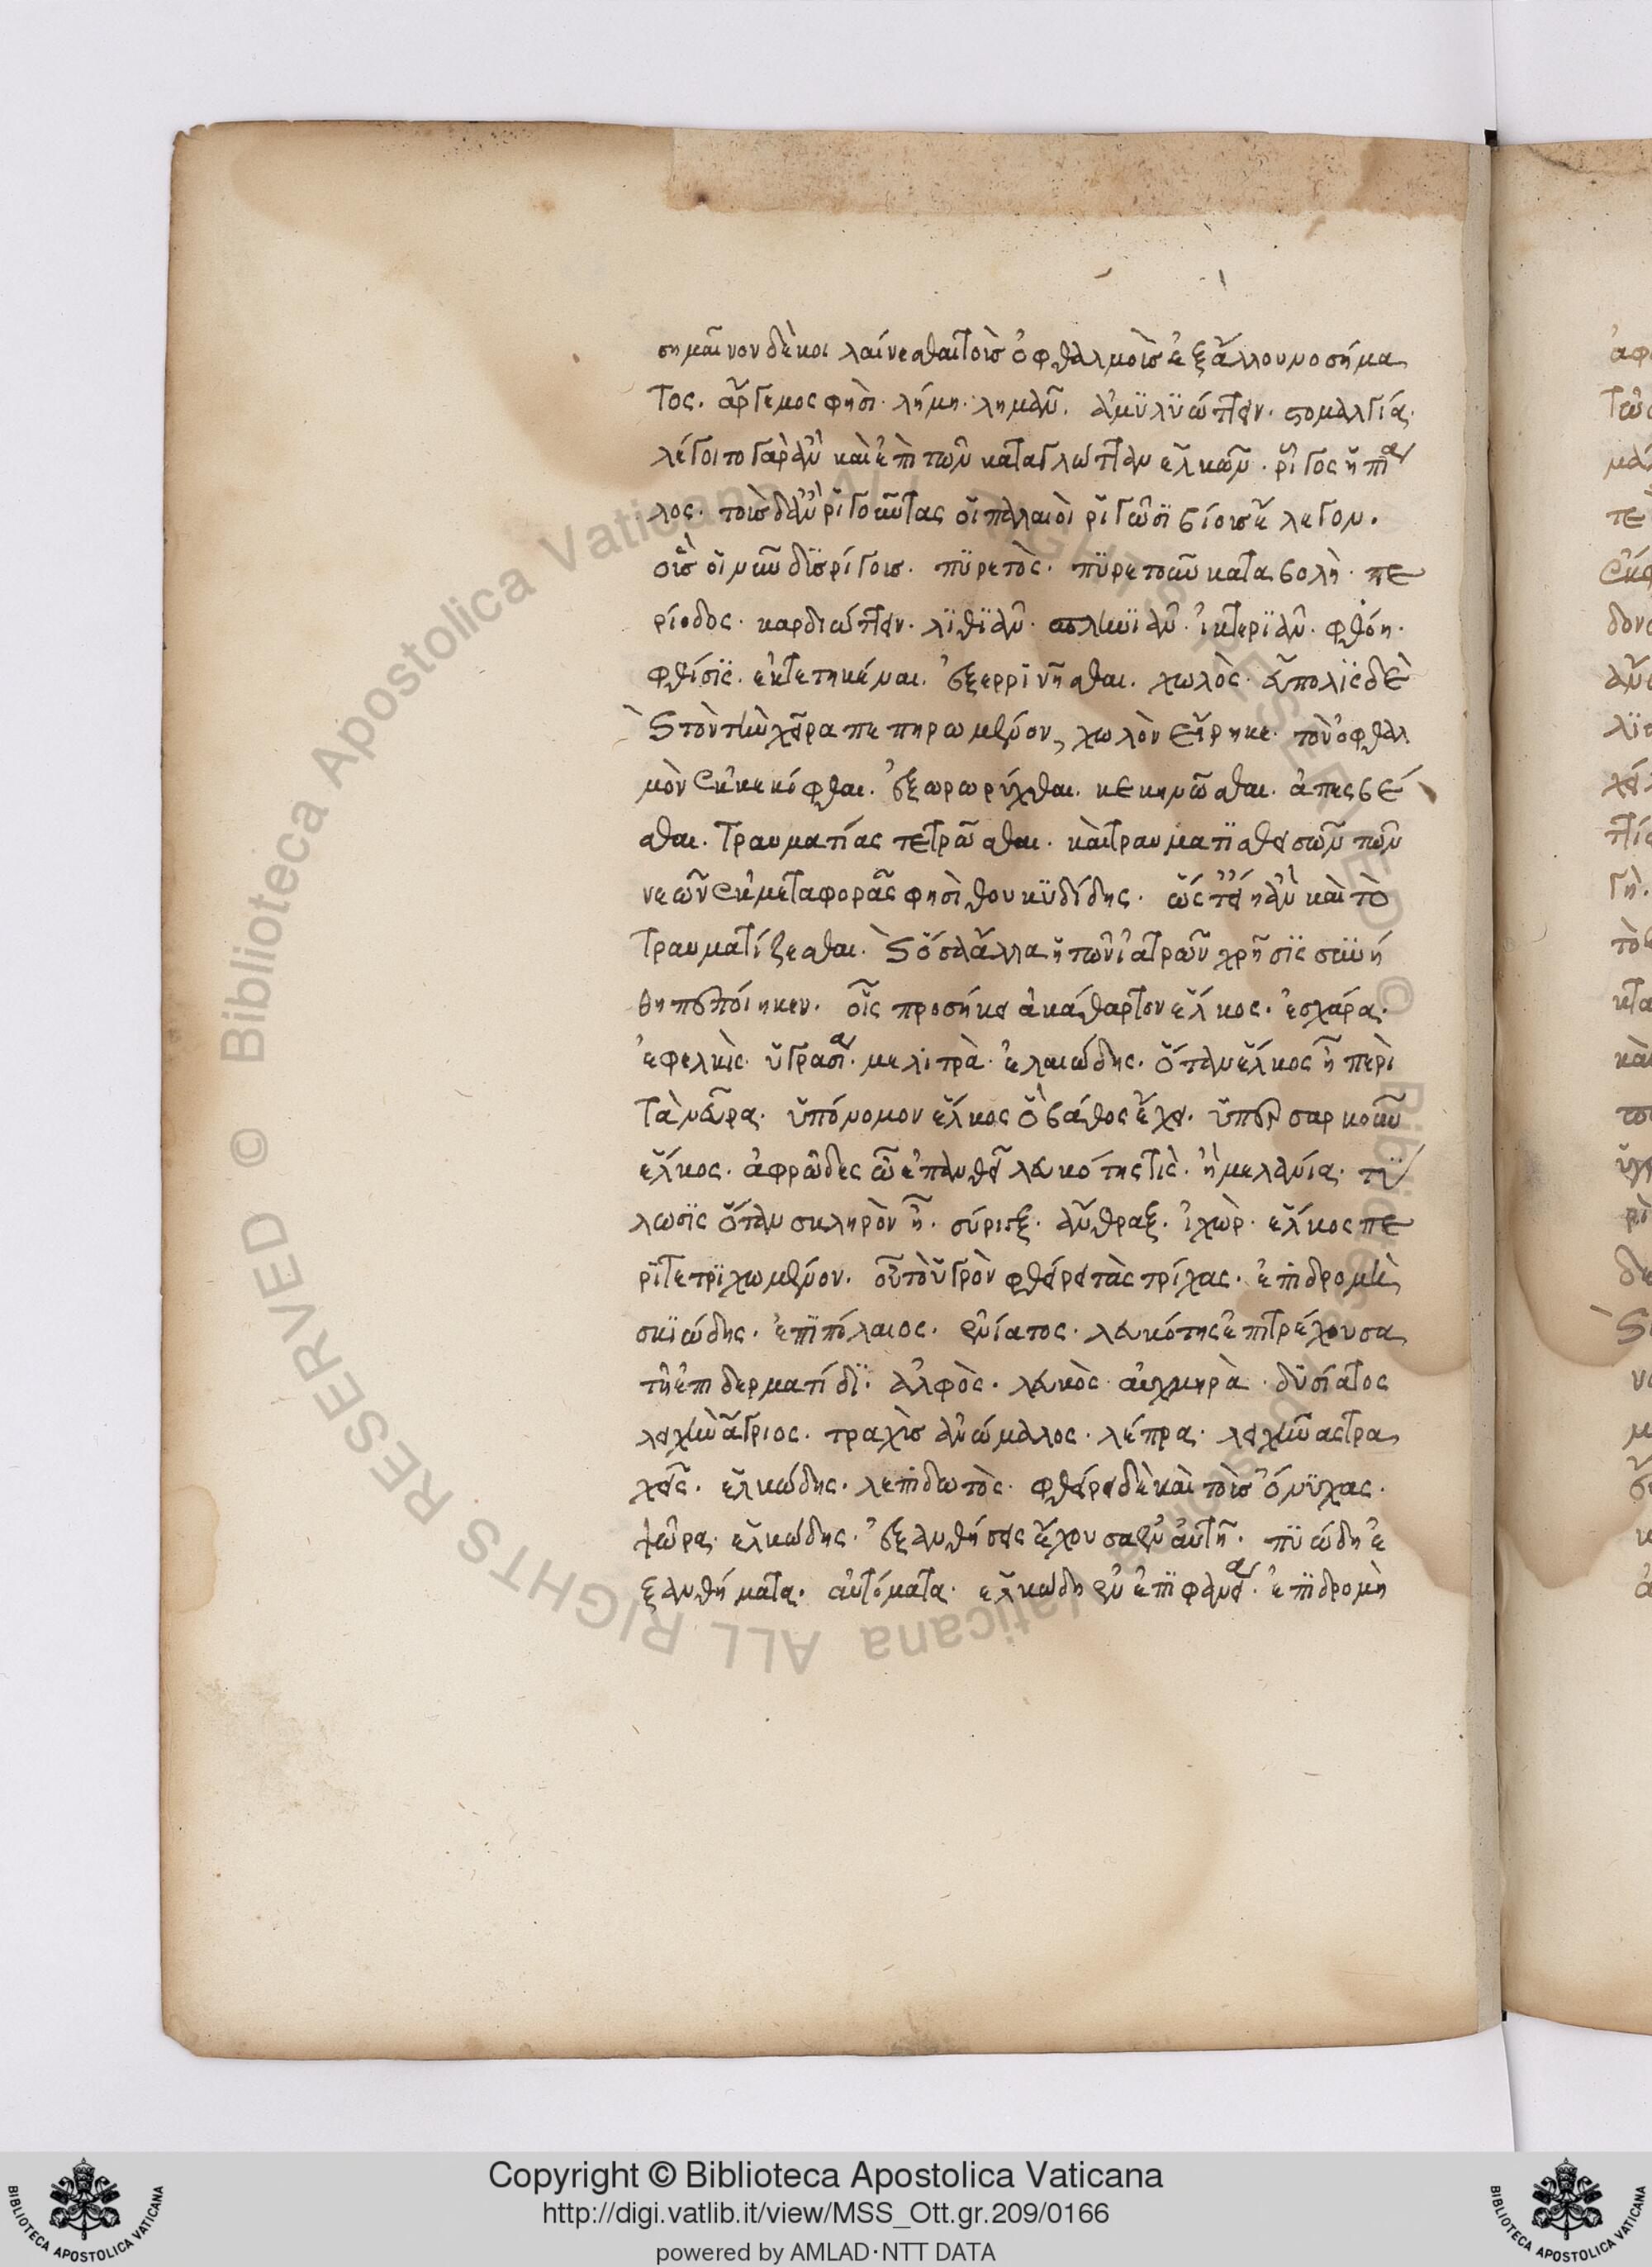 σημαῖνον δὲ κοιλαίνεσθαι τοῖς ὀφθαλμοῖς ἐξ ἄλλου νοσήμα
τος. ἄργεμος φησὶ. λήμη. λημᾶν. ἀμϋλϋώττειν. στομαλγία.
λέγοιτο γὰρ ἂν καὶ ἐπὶ τῶν κατὰ γλῶτταν ἑλκῶν. ῥῖγος ἠπία
λος. τοῖς δ' ἂν ῥιγοῦντας οἱ παλαιοὶ ῥιγωσϊβίοις ἔλεγον.
οἷς οἱ νῦν δϊσρίγοις. πϋρετὸς. πϋρετοῦ καταβολὴ. πε
ρίοδος. καρδιώττειν. λϊθϊᾶν. σπληνϊᾶν. ἰκτερϊᾶν. φθόη.
φθίσϊς. ἐκτετηκέναι. ἐξερρινῆσθαι. χωλὸς. εὔπολϊς δὲ
καὶ τὸν τὴν χεῖρα πεπηρωμένον, χωλὸν εἴρηκε. τὸν ὀφθαλ
μὸν ἐκκεκόφθαι. ἐξωρωρύχθαι. κεκενῶσθαι. ἀπεσβέ
σθαι. τραυματίας τετρῶσθαι. καὶ τραυματϊσθεισῶν τῶν
νεῶν ἐκ μεταφορᾶς φησὶ θουκϋδίδης. ὥστ' εἴη ἂν καὶ τὸ
τραυματίζεσθαι. καὶ ὅσα ἄλλα ἡ τῶν ἰατρῶν χρῆσϊς συνή
θη πεποίηκεν. οἷς προσήκει ἀκάθαρτον ἕλκος. ἐσχάρα.
ἐφελκὶς. ὑγρασία. μελιτρὰ. ἐλαιώδης. ὅταν ἕλκος ἦ περὶ
τὰ νεῦρα. ὑπόνομον ἕλκος ὃ βάθος ἔχει. ὑπερσαρκοῦν
ἕλκος. ἀφρῶδες ὧ ἐπανθεῖ λευκότης τὶς. ἢ μελανία. τϋ
λωσϊς ὅταν σκληρὸν ἦ. σύριγξ. ἄνθραξ. ἰχὼρ. ἕλκος πε
ρϊτετρϊχωμένον. οὗ τὸ ὑγρὸν φθείρει τὰς τρίχας. ἐπιδρομὴ
σκϊώδης. ἐπϊπόλαιος. εὐίατος. λευκότης ἐπιτρέχουσα
τῆ ἐπιδερματίδϊ. ἀλφὸς. λευκὸς. αὐχμηρὰ. δϋσίατος
λειχὴν ἄγριος. τραχὺς ἀνώμαλος. λέπρα. λειχῆνας τρα
χεῖς. ἑλκώδης. λεπιδωτὸς. φθείρει δὲ καὶ τοῖς ὄνϋχας.
ψώρα. ἑλκώδης. ἐξανθήσεις ἔχουσα ἐν αὑτῆ. πϋώδη ἐ
ξανθήματα. αὐτόματα. ἑλκώδη ἐν ἐπϊφανεία. ἐπϊδρομὴ
Copyright © Biblioteca Apostolica Vaticana
http://digi.vatlib.it/view/MSS_Ott.gr.209/0166
powered by AMLAD·NTT DATA